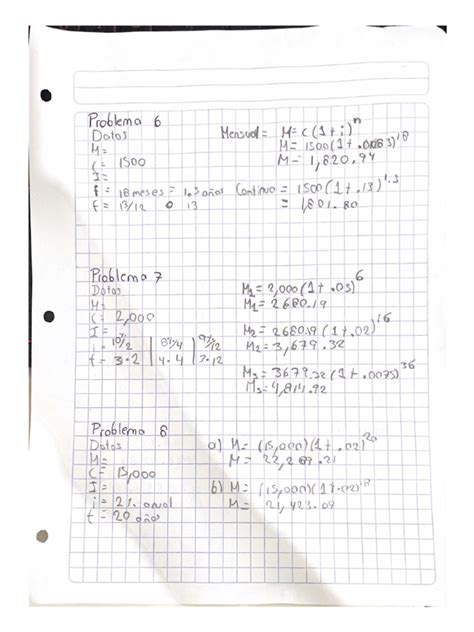 Problema 6
Datos
Mensual = M= c(1+i)^n
M=
M= 1500(1+.01083)^18
C= 1500
M= 1,820.94
I=
t= 18 meses = 1.5 años Continuo = 1500(1+.13)^1.5
t= 13/12 o 13
= 1,801.80
Problema 7
Datos
M1= 2,000(1+.03)^6
M=
M1= 2680.19
C= 2,000
M2= 2680.19(1+.02)^16
I=
M2= 3,679.32
t= 3·2 | 4·4 | 3·12
M3= 3679.32(1+.0075)^36
M3= 4,814.92
Problema 8
Datos
a) M= (15,000)(1+.02)^20
M=
M= 22,289.21
C= 15,000
I=
b) M= (15,000)(1+.02)^18
i= 2% anual
M= 21,423.09
t= 20 años